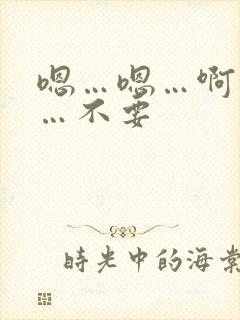 嗯…嗯…啊
…不要
時光中的海棠